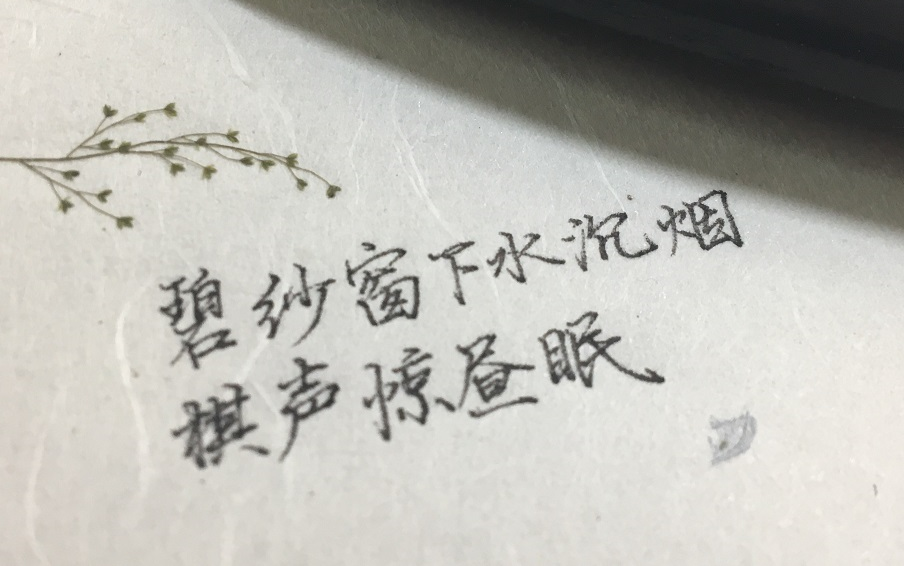 碧纱窗下水沉烟
棋声惊昼眠